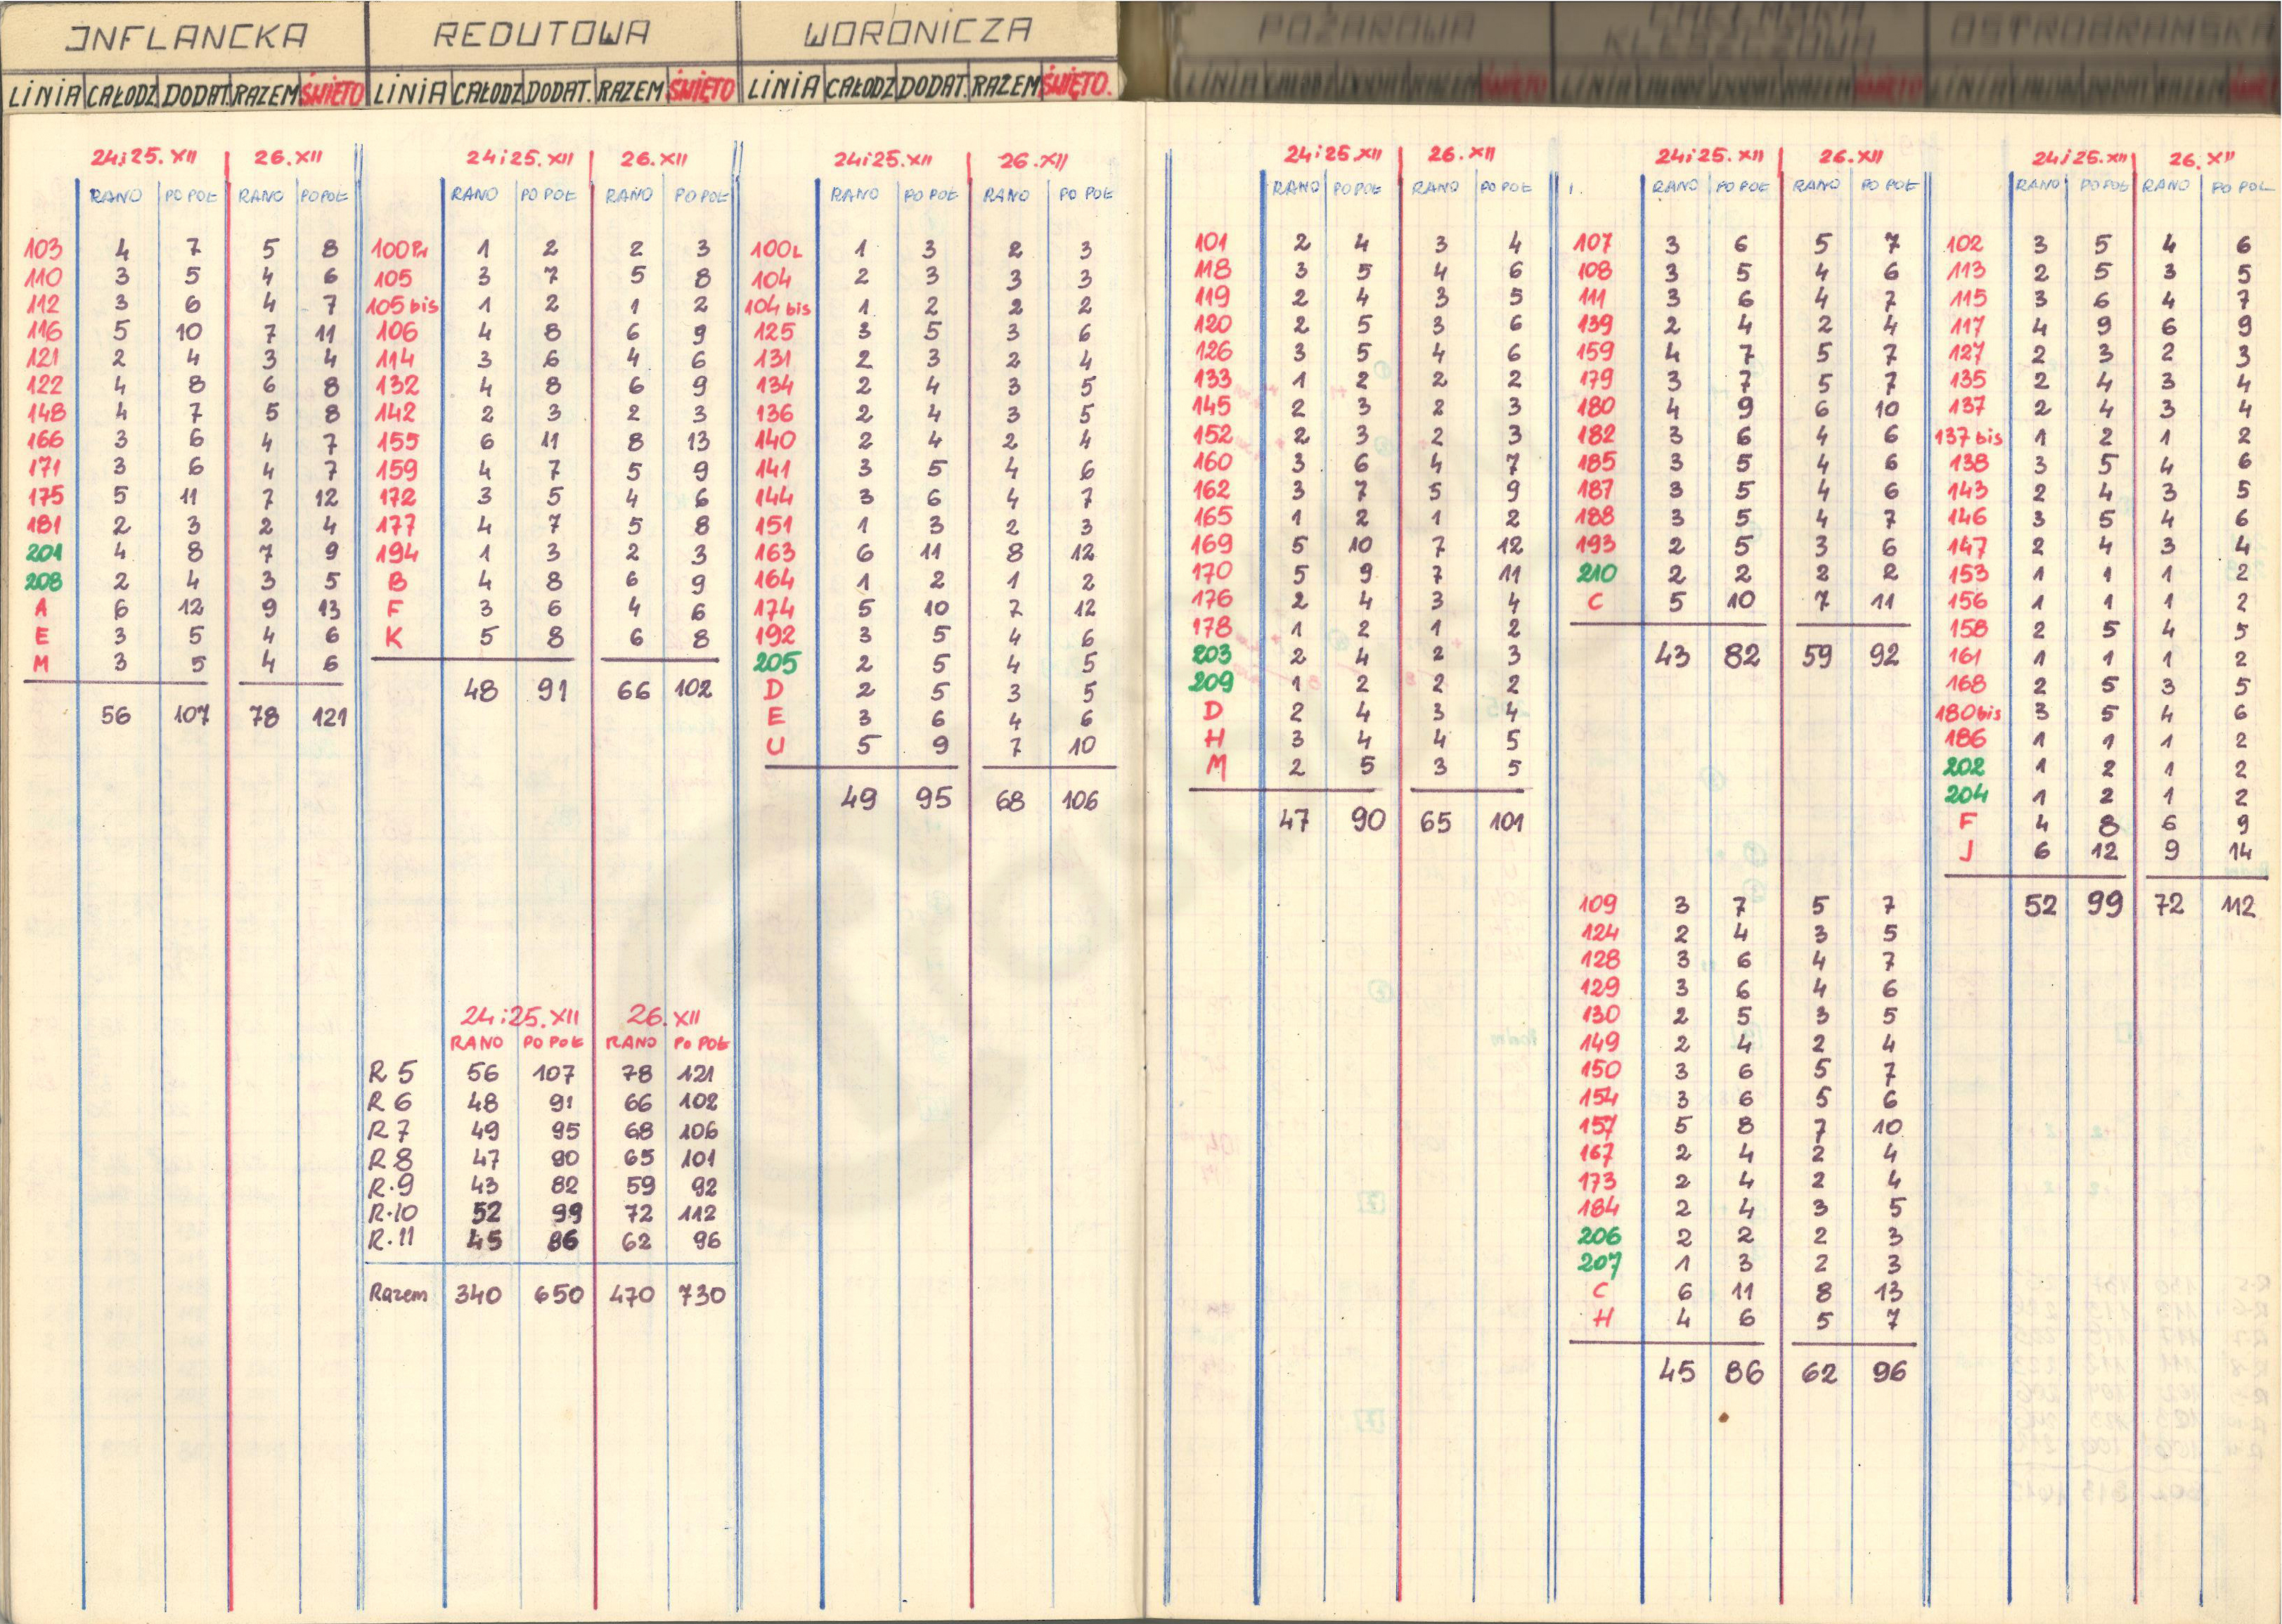 INFLANCKA
LINIA CAŁODZ DODAT. RAZEM ŚWIĘTO
24i25.XII 26.XII
RANO PO POŁ RANO PO POŁ
103 4 7 5 8
110 3 5 4 6
112 3 6 4 7
116 5 10 7 11
121 2 4 3 4
122 4 8 6 8
148 4 7 5 8
166 3 6 4 7
171 3 6 4 7
175 5 11 7 12
181 2 3 2 4
201 4 8 7 9
208 2 4 3 5
A 6 12 9 13
E 3 5 4 6
M 3 5 4 6
56 107 78 121
REDUTOWA
LINIA CAŁODZ DODAT. RAZEM ŚWIĘTO
24i25.XII 26.XII
RANO PO POŁ RANO PO POŁ
100Pr 1 2 2 3
105 3 7 5 8
105 bis 1 2 1 2
106 4 8 6 9
114 3 6 4 6
132 4 8 6 9
142 2 3 2 3
155 6 11 8 13
159 4 7 5 9
172 3 5 4 6
177 4 7 5 8
194 1 3 2 3
B 4 8 6 9
F 3 6 4 6
K 5 8 6 8
48 91 66 102
24i25.XII 26.XII
RANO PO POŁ RANO PO POŁ
R 5 56 107 78 121
R 6 48 91 66 102
R 7 49 95 68 106
R 8 47 90 65 101
R.9 43 82 59 92
R.10 52 99 72 112
R.11 45 86 62 96
Razem 340 650 470 730
WORONICZA
LINIA CAŁODZ DODAT. RAZEM ŚWIĘTO.
24i25.XII 26.XII
RANO PO POŁ RANO PO POŁ
100L 1 3 2 3
104 2 3 3 3
104 bis 1 2 2 2
125 3 5 3 6
131 2 3 2 4
134 2 4 3 5
136 2 4 3 5
140 2 4 2 4
141 3 5 4 6
144 3 6 4 7
151 1 3 2 3
163 6 11 8 12
164 1 2 1 2
174 5 10 7 12
192 3 5 4 6
205 2 5 4 5
D 2 5 3 5
E 3 6 4 6
U 5 9 7 10
49 95 68 106
POŻAROWA
24i25.XII 26.XII
RANO PO POŁ RANO PO POŁ
101 2 4 3 4
118 3 5 4 6
119 2 4 3 5
120 2 5 3 6
126 3 5 4 6
133 1 2 2 2
145 2 3 2 3
152 2 3 2 3
160 3 6 4 7
162 3 7 5 9
165 1 2 1 2
169 5 10 7 12
170 5 9 7 11
176 2 4 3 4
178 1 2 1 2
203 2 4 2 3
209 1 2 2 2
D 2 4 3 4
H 3 4 4 5
M 2 5 3 5
47 90 65 101
KLESZCZOWA
24i25.XII 26.XII
RANO PO POŁ RANO PO POŁ
107 3 6 5 7
108 3 5 4 6
111 3 6 4 7
139 2 4 2 4
159 4 7 5 7
179 3 7 5 7
180 4 9 6 10
182 3 6 4 6
185 3 5 4 6
187 3 5 4 6
188 3 5 4 7
193 2 5 3 6
210 2 2 2 2
C 5 10 7 11
43 82 59 92
109 3 7 5 7
124 2 4 3 5
128 3 6 4 7
129 3 6 4 6
130 2 5 3 5
149 2 4 2 4
150 3 6 5 7
154 3 6 5 6
157 5 8 7 10
167 2 4 2 4
173 2 4 2 4
184 2 4 3 5
206 2 2 2 3
207 1 3 2 3
C 6 11 8 13
H 4 6 5 7
45 86 62 96
OSTROBRAMSKA
24i25.XII 26.XII
RANO PO POŁ RANO PO POŁ
102 3 5 4 6
113 2 5 3 5
115 3 6 4 7
117 4 9 6 9
127 2 3 2 3
135 2 4 3 4
137 2 4 3 4
137 bis 1 2 1 2
138 3 5 4 6
143 2 4 3 5
146 3 5 4 6
147 2 4 3 4
153 1 1 1 2
156 1 1 1 2
158 2 5 4 5
161 1 1 1 2
168 2 5 3 5
180 bis 3 5 4 6
186 1 1 1 2
202 1 2 1 2
204 1 2 1 2
F 4 8 6 9
J 6 12 9 14
52 99 72 112